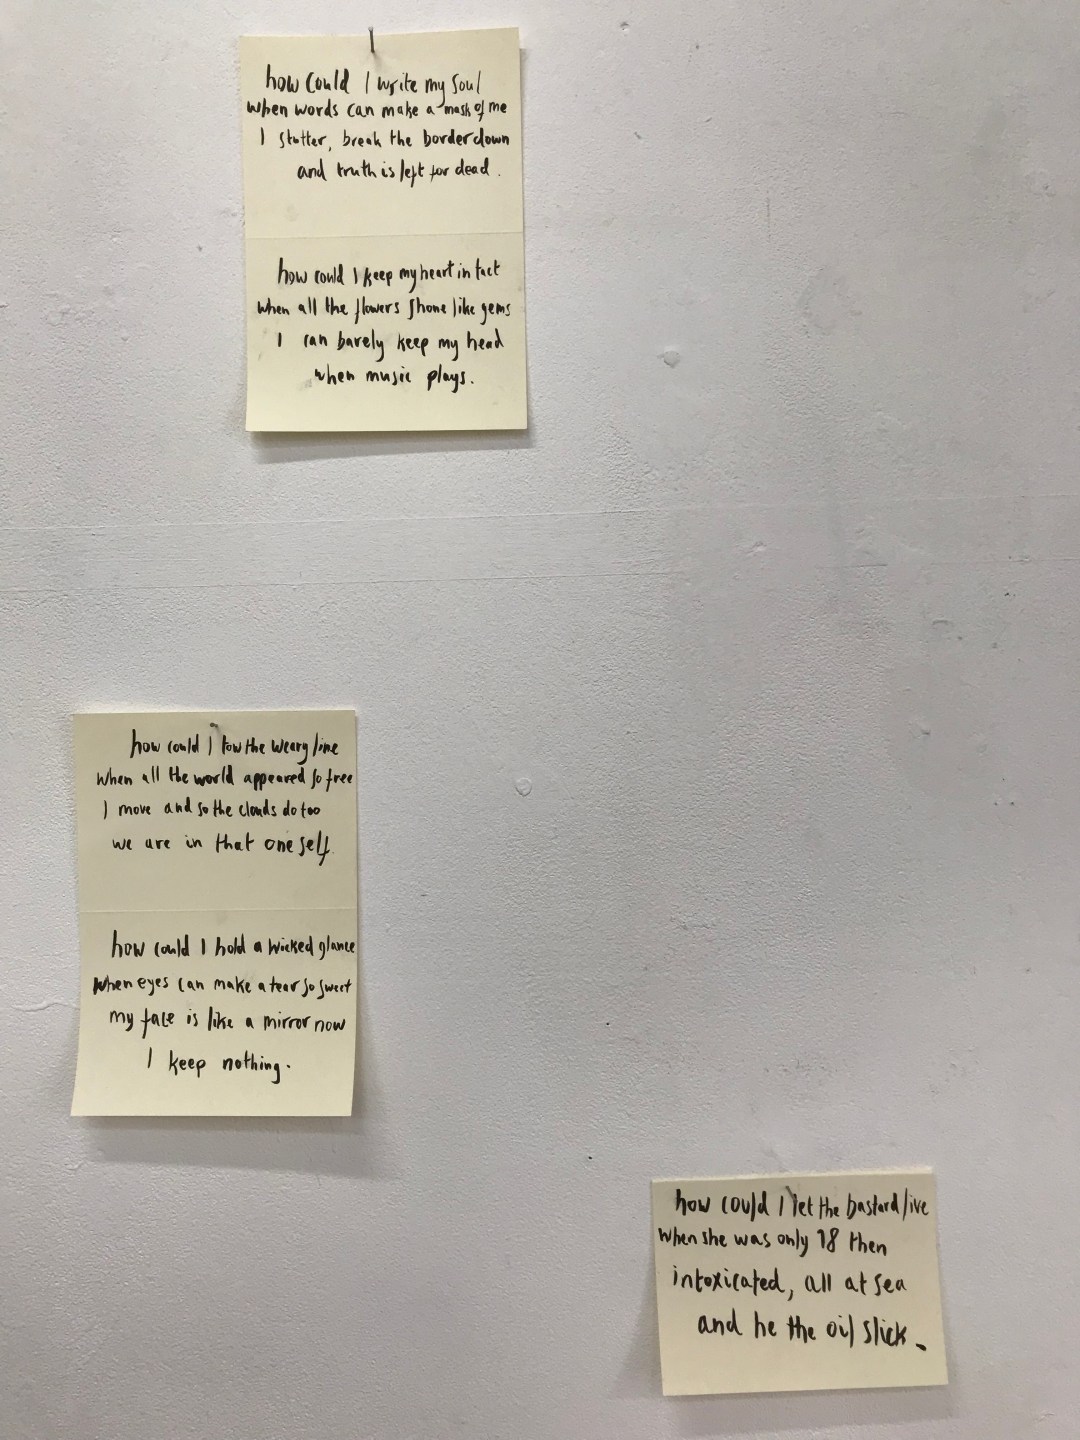 how could I write my soul
when words can make a mask of me
I stutter, break the border down
and truth is left for dead.
how could I keep my heart in tact
when all the flowers shone like gems
I can barely keep my head
when music plays.
how could I tow the weary line
when all the world appeared so free
I move and so the clouds do too
we are in that one self.
how could I hold a wicked glance
when eyes can make a tear so sweet
my face is like a mirror now
I keep nothing.
how could I let the bastard live
when she was only 18 then
intoxicated, all at sea
and he the oil slick.